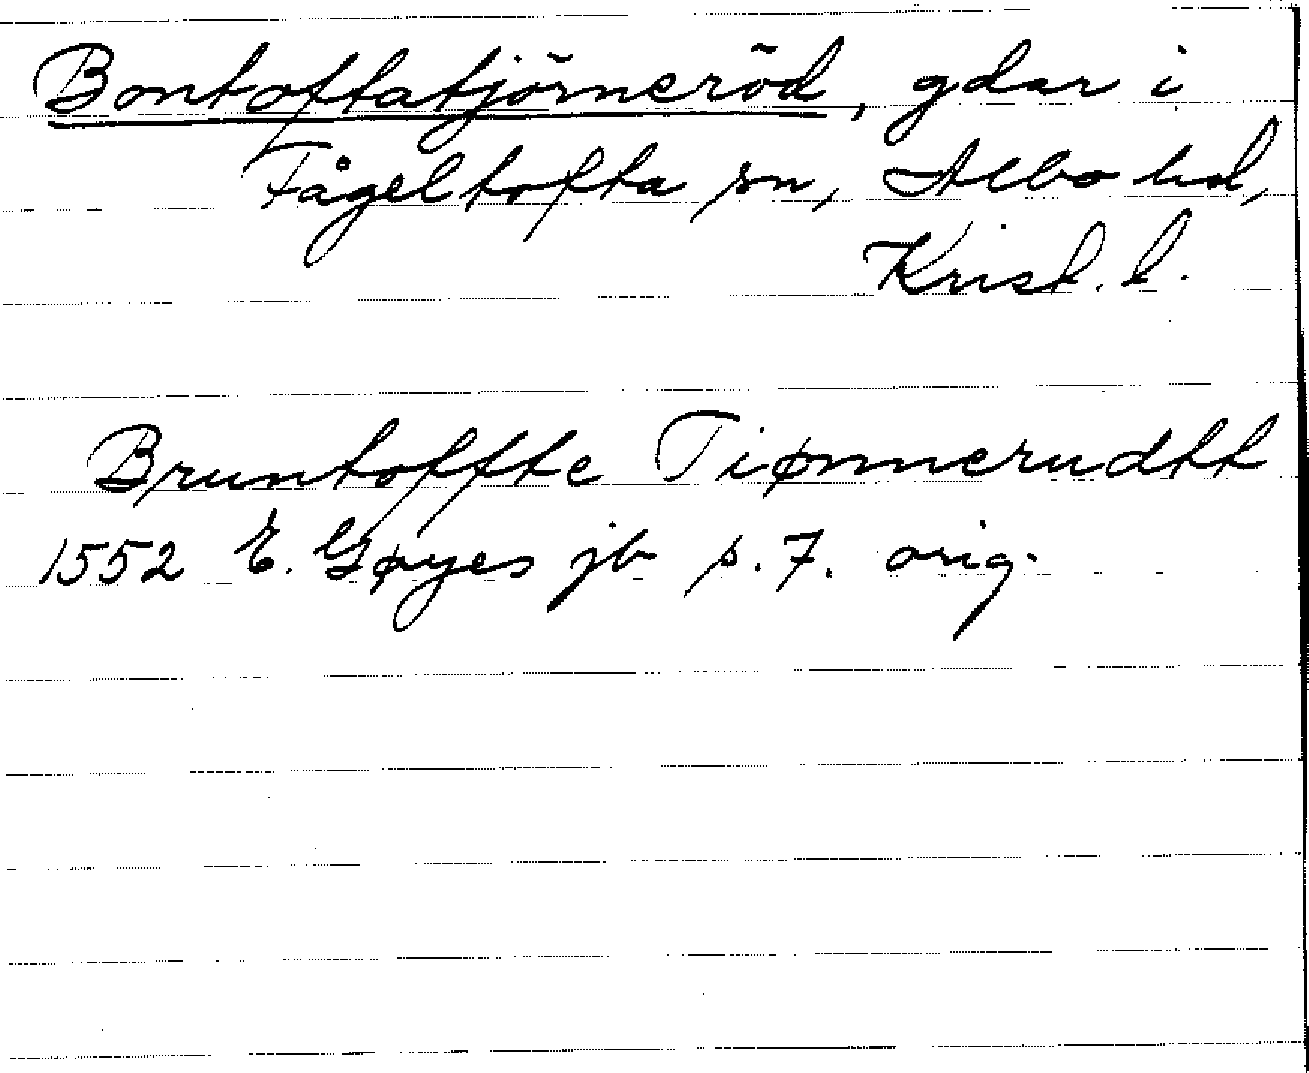 Bontoftatjörneröd, gdar i
Fågeltofta sn, Albo hd,
Krist. l.
Bruntoffte Tiønnerudtt
1552 E. Gøyes jb s. 7. orig.